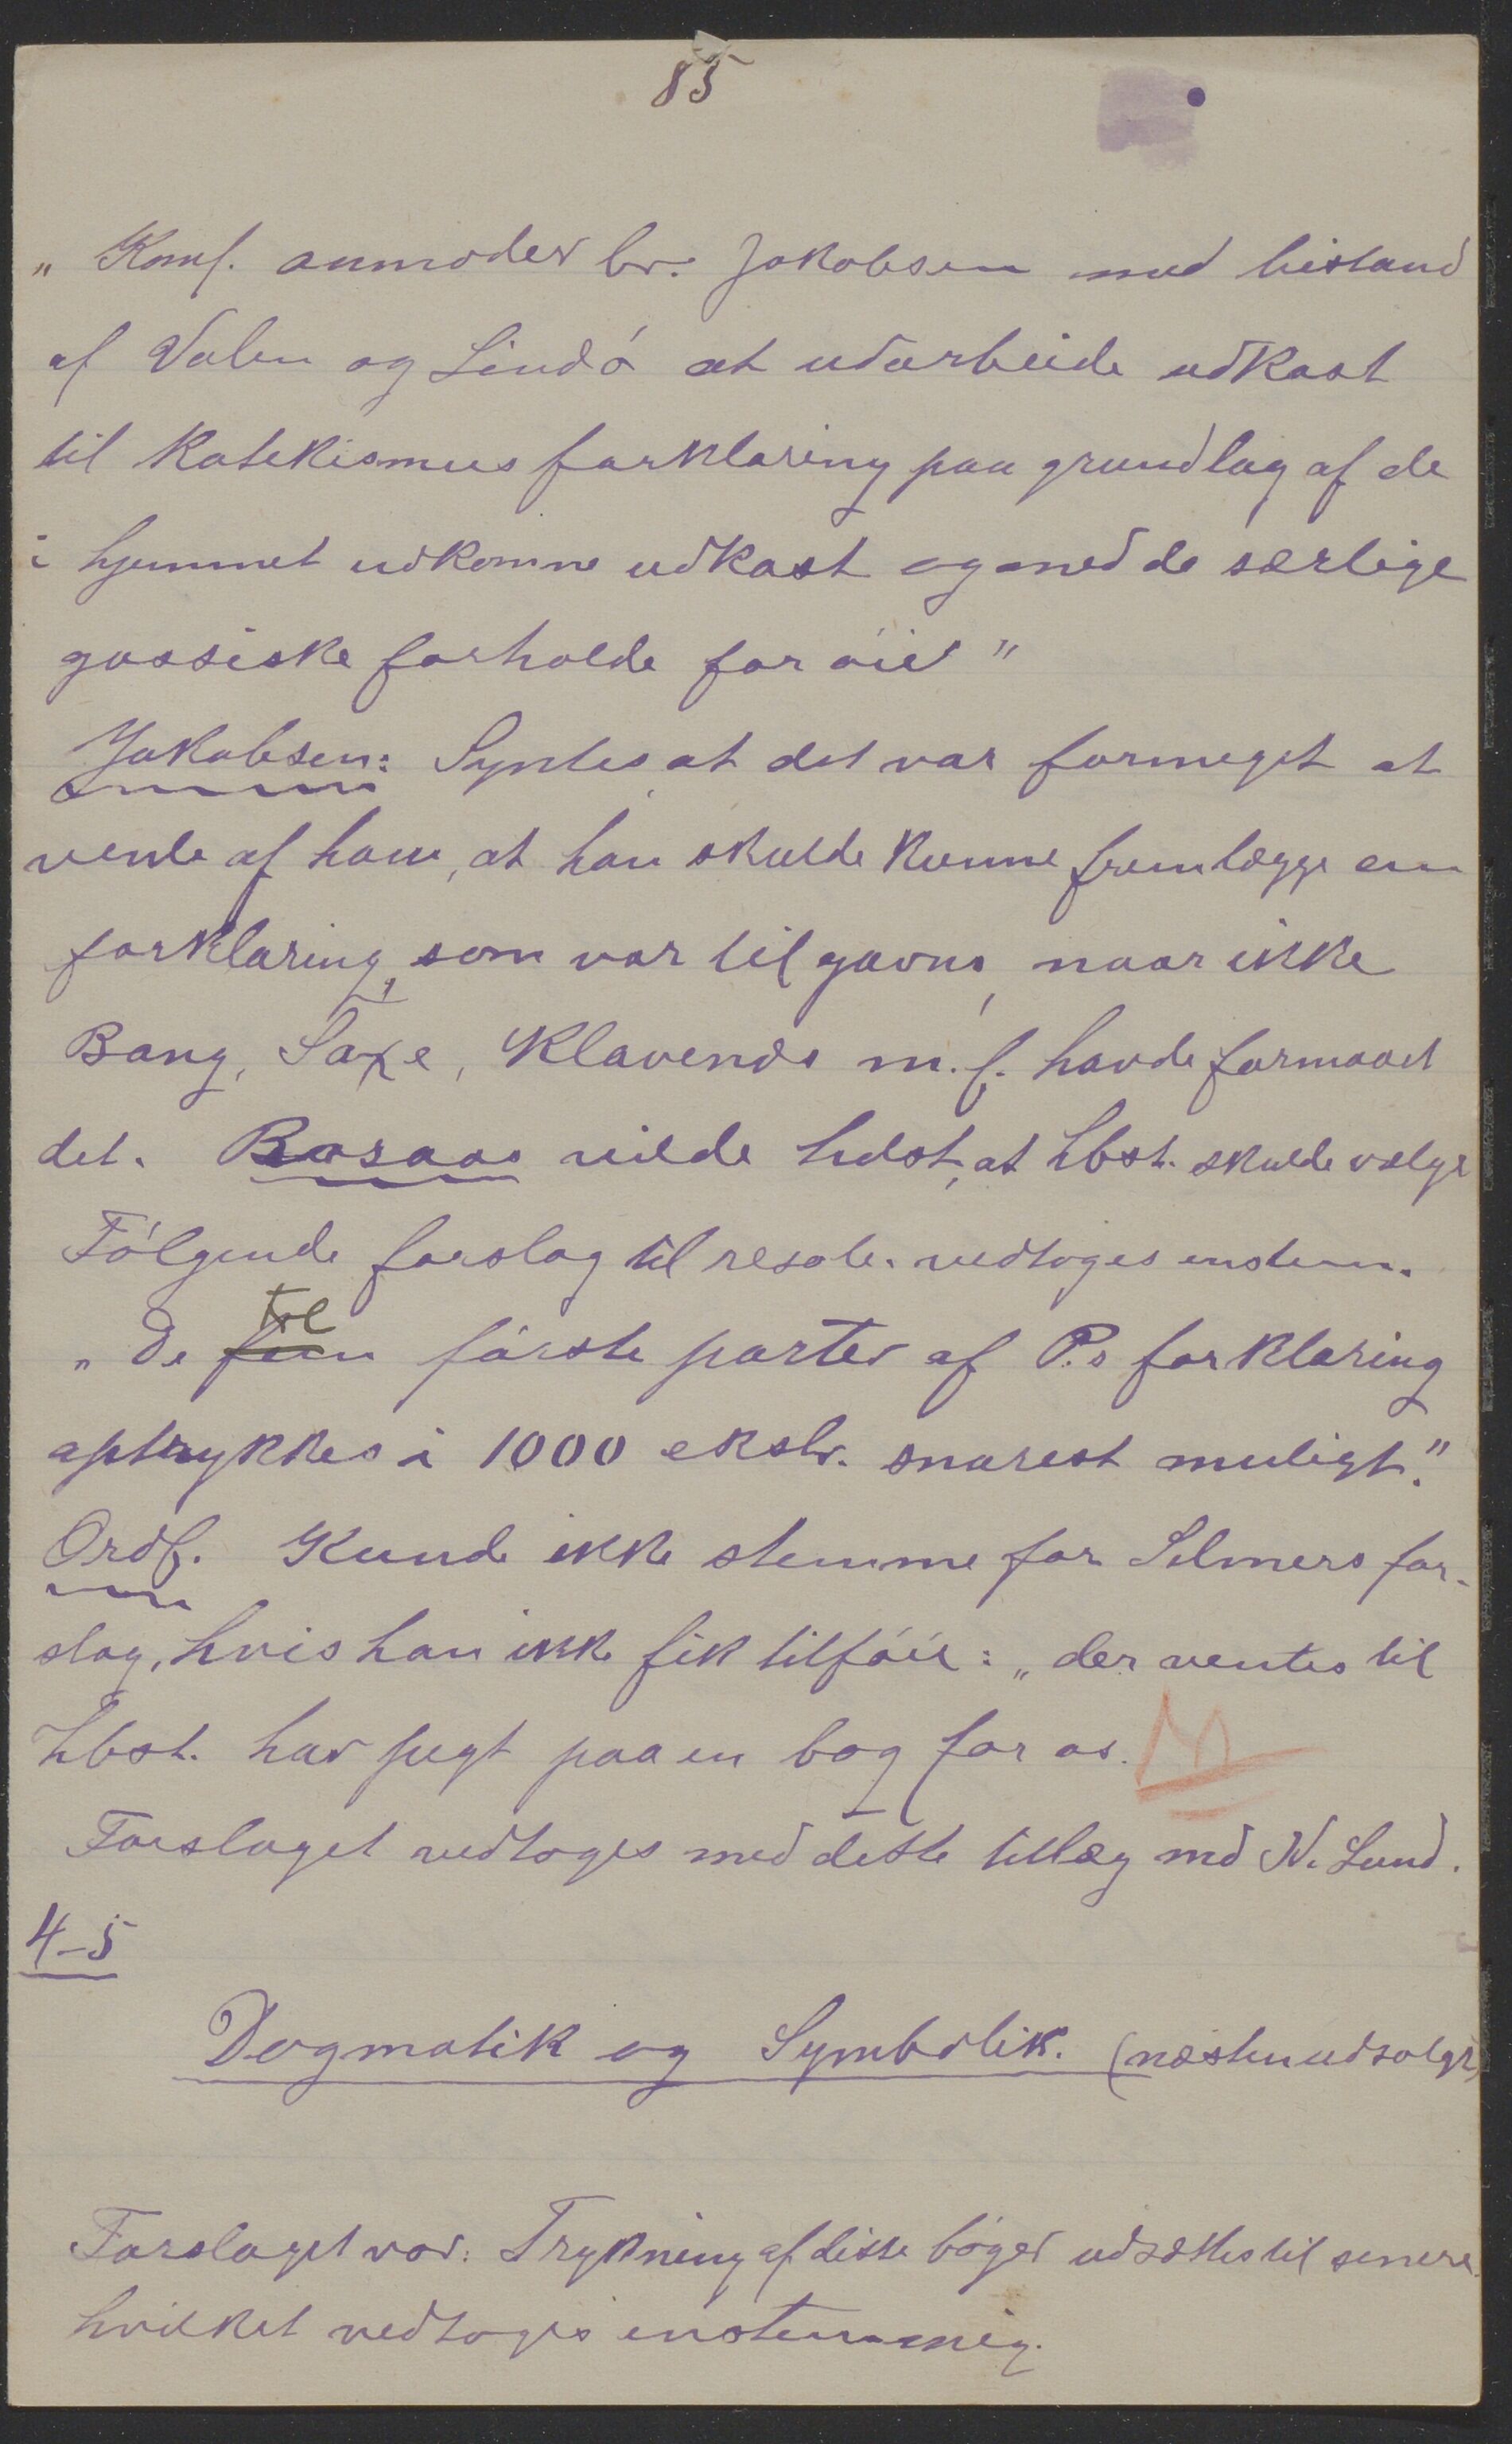 85
„Konf. anmoder br. Jakobsen med bistand
af Valen og Lindö at udarbeide udkast
til Katekismusforklaring paa grundlag af de
i hjemmet udkomne udkast og med de særlige
gassiske forholde for öie"
Jakobsen: Syntes, at det var formeget at
vente af ham, at han skulde kunne fremlægge en
forklaring, som var til gavns, naar ikke
Bang, Saxe, Klavenæs m.f. havde formaaet
det. Borgaas vilde helst, at Hbst. skulde vælge
Fölgende forslag til resol. vedtoges enstem.
„De tre förste parter af P.s forklaring
aptrykkes i 1000 ekspl. snarest muligt."
Ordf. Kunde ikke stemme for Selmers for-
slag, hvis han ikke fik tilföiet: „der ventes til
Hbst. har pegt paa en bog for os.
Forslaget vedtoges med dette tillæg md N. Lund.
4-5
Dogmatik og Symbolik. (næsten udsolgt)
Forslaget var: Trykning af disse böger udsættes til senere
hvilket vedtoges enstemmig.